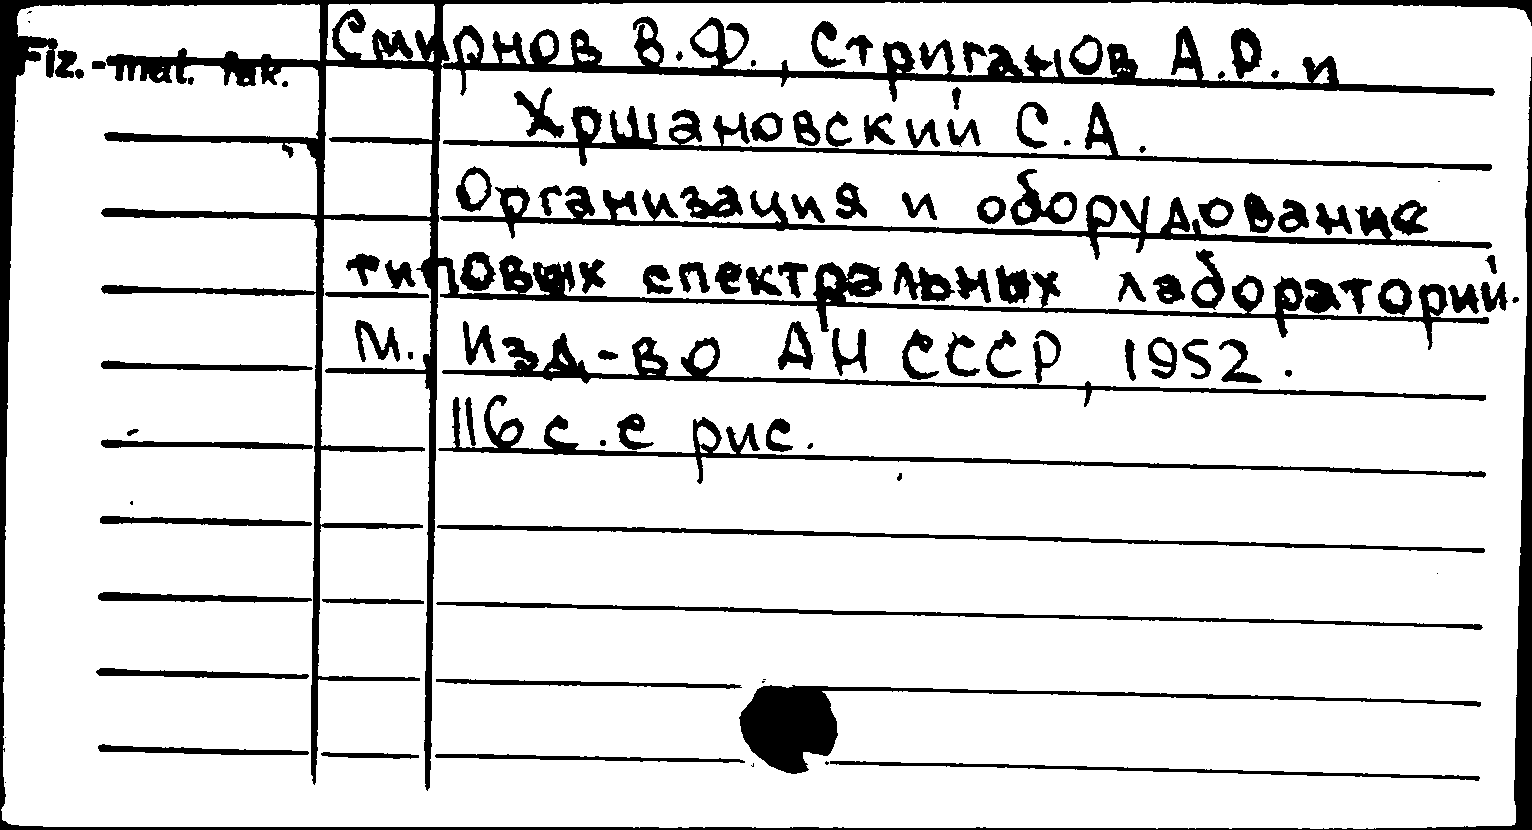 Fiz.-mat. fak.
Смирнов В.Ф., Стриганов А.Р. и
Хршановский С.А.
Организация и оборудование
типовых спектральных лабораторий.
М., Изд-во АН СССР, 1952.
116 с. с рис.